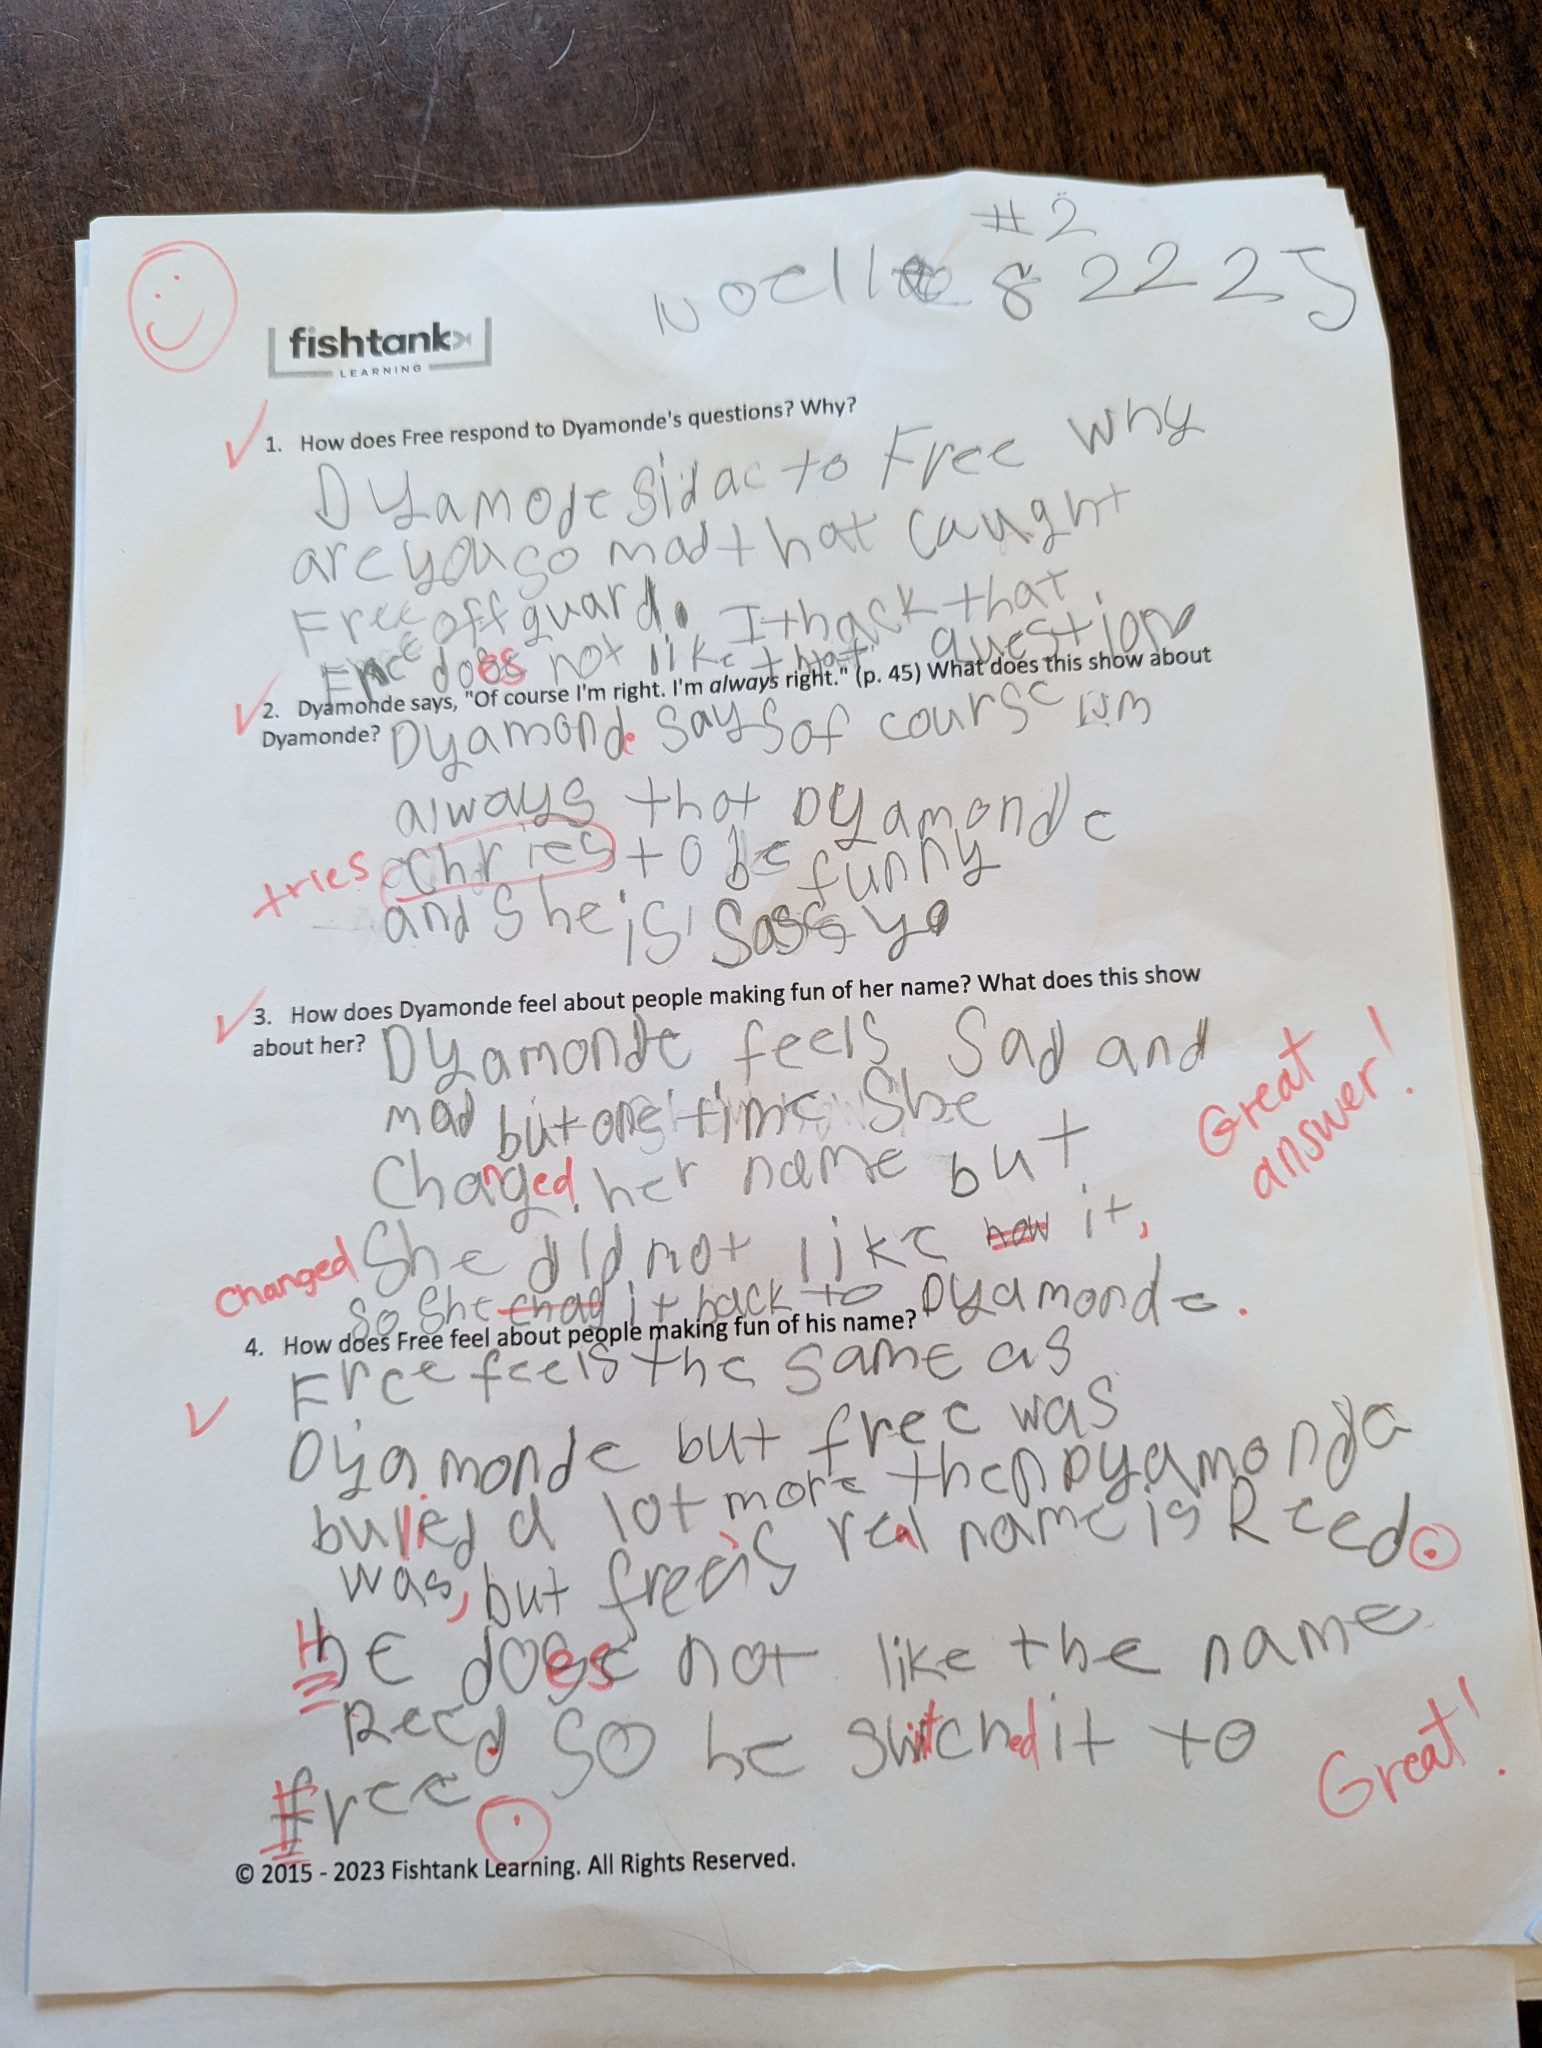 #2
Noelle 8 22 25
fishtank
LEARNING
1. How does Free respond to Dyamonde's questions? Why?
Dyamode sid ac to Free why
are you so mad that caught
Free off guard. I thack that
Free does not like that question
2. Dyamonde says, "Of course I'm right. I'm always right." (p. 45) What does this show about
Dyamonde? Dyamonde says of course
always that Dyamonde
tries chries to be funny
and she is sassy
3. How does Dyamonde feel about people making fun of her name? What does this show
about her? Dyamonde feels sad and
mad but one time she
Changed her name but
She did not like how it,
Changed so she chag it back to Dyamonde.
Great
answer!
4. How does Free feel about people making fun of his name?
Free feels the same as
Dyamonde but free was
bullied a lot more then Dyamonda
was, but free's real name is Reed.
He does not like the name
Reed. so he switched it to
Free.
Great!
© 2015 - 2023 Fishtank Learning. All Rights Reserved.